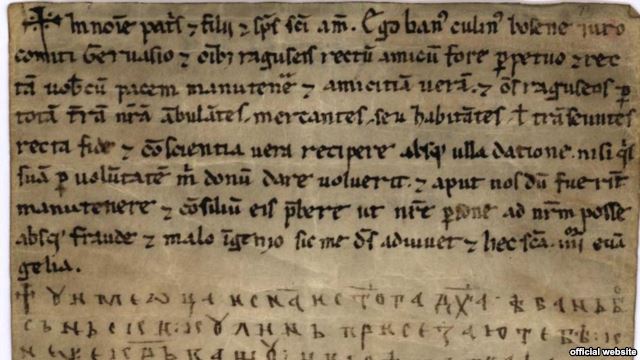 ☩ In noīe pat̄s ⁊ filii ⁊ sp̄s scī am̄. Ego ban' culin' bosene iuro
comiti Geruasio ⁊ oībꝫ raguseis rectū amicū fore ꝑpetuo ⁊ rec
tā uobcū pacem manutenēr ⁊ amicitiā verā. ⁊ om̄s raguseos ꝑ
totā tr̄ā nr̄ā ābulātes. mercantes. seu habitātes ł trāseuntes
recta fide ⁊ cōscientia vera recipere absqꝫ ulla datione. nisi q̄s
suā ꝑ volūtatē m̄ donū dare voluerit. ⁊ aput nos dū fuerīt
manutenere ⁊ cōsiliū eis p̄bere ut nr̄e ꝑsone ad nr̄m posse
absqꝫ fraude ⁊ malo īgenio sic me d̄s adiuuet ⁊ hec scā .iiiior. euā
gelia.
☩ У име ѡца и сн҃а и ст҃ога дх҃а ѣ бань бо
сьньски кулинь присезаю тебѣ
official website